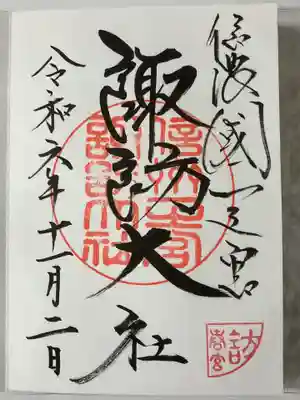 信濃國一之宮
諏訪大社
令和六年十一月二日